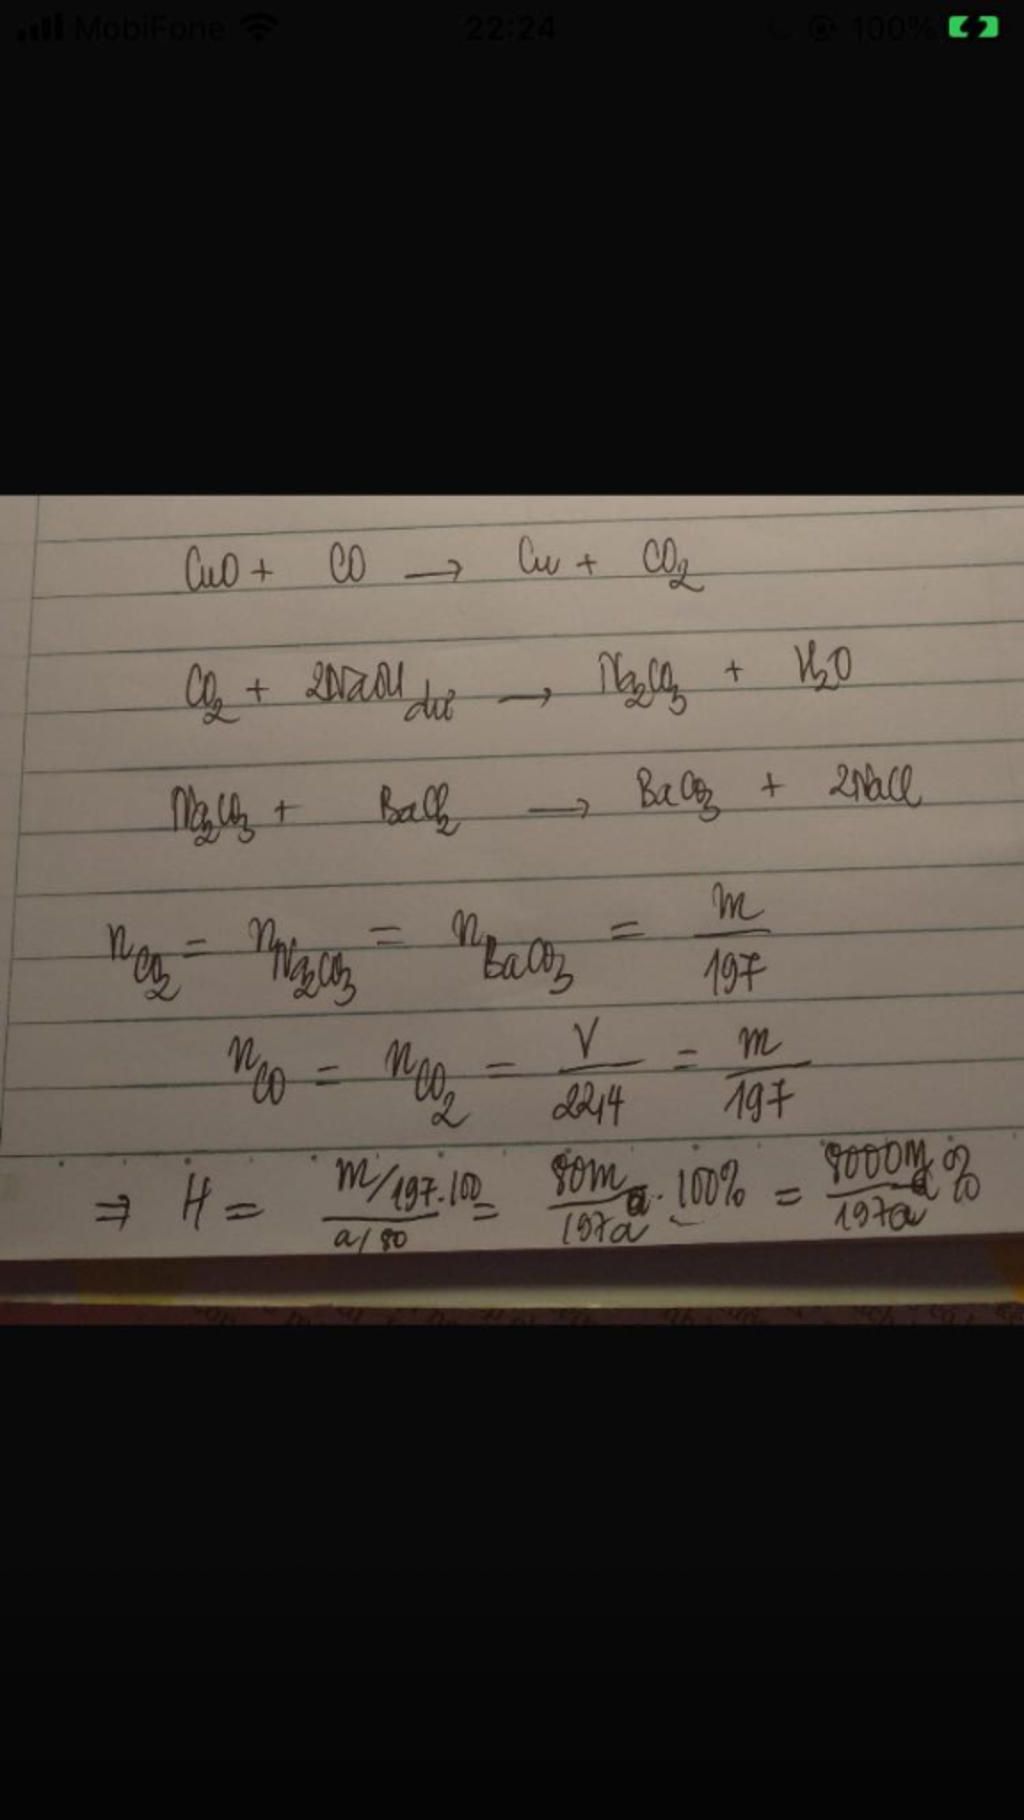 MobiFone 22:24 100%
CuO + CO → Cu + CO₂
CO₂ + 2NaOH dư → Na₂CO₃ + H₂O
Na₂CO₃ + BaCl₂ → BaCO₃ + 2NaCl
n CO₂ = n Na₂CO₃ = n BaCO₃ = m/197
n CO = n CO₂ = V/22,4 = m/197
⇒ H = (m/197 . 100)/(a/80) = 80m/197a . 100% = 8000m/197a %